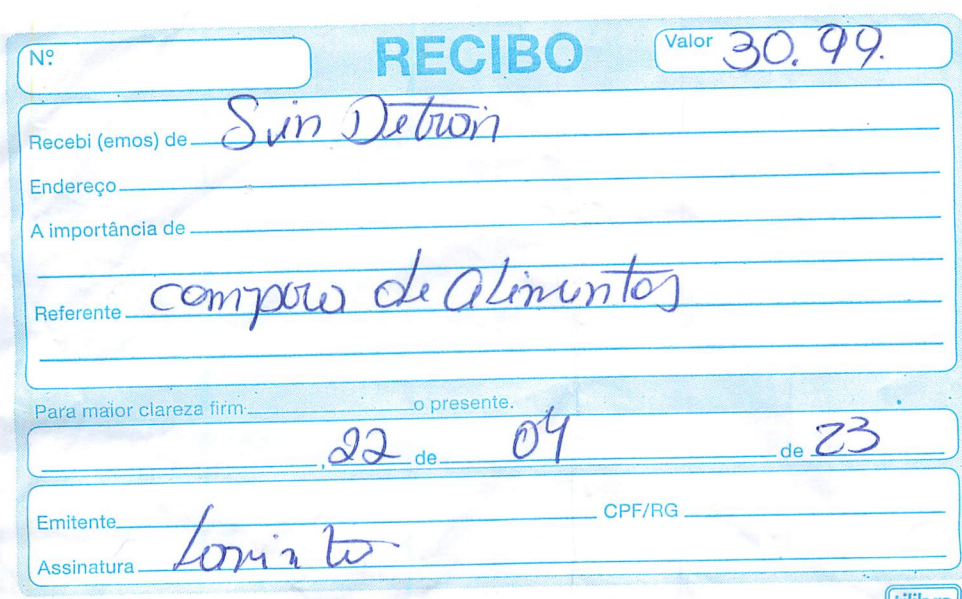 Nº RECIBO Valor 30.99.
Recebi (emos) de Sun Detron
Endereço
A importância de
Referente compra de alimentos
Para maior clareza firm o presente.
, 22 de 04 de 23
Emitente CPF/RG
Assinatura